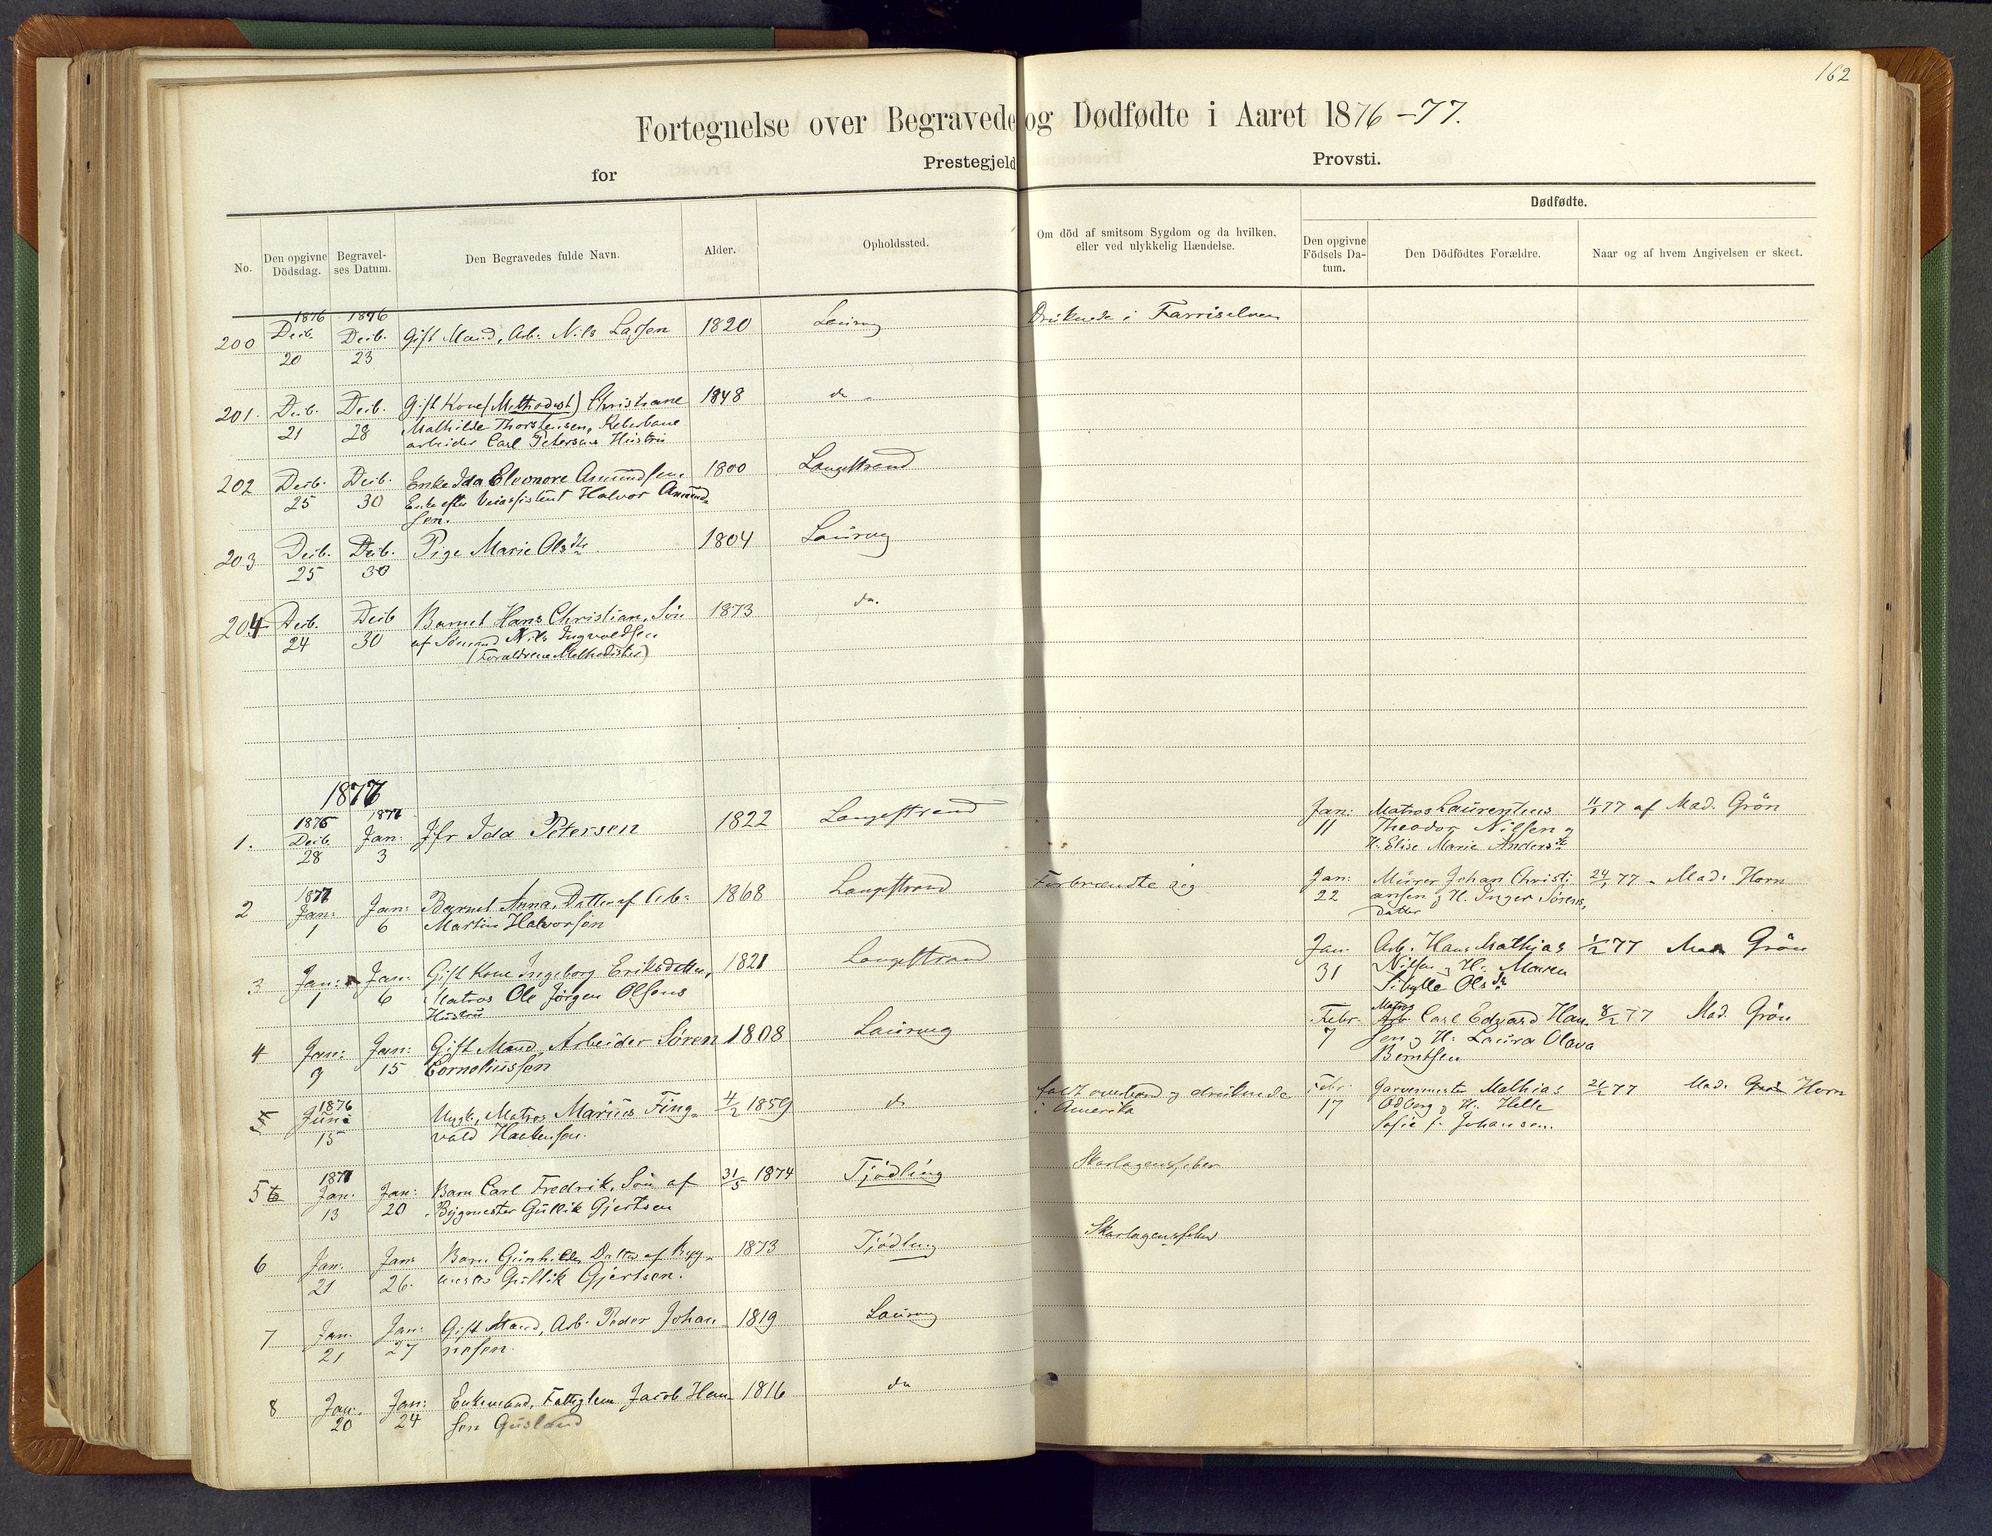 162
Fortegnelse over Begravede og Dødfødte i Aaret 1876-77.
for Prestegjeld Provsti.
No.
Den opgivne Dödsdag.
Begravel-ses Datum.
Den Begravedes fulde Navn.
Alder.
Opholdssted.
Om död af smitsom Sygdom og da hvilken,
eller ved ulykkelig Hændelse.
Dødfødte.
Den opgivne Födsels Da-tum.
Den Dödfödtes Forældre.
Naar og af hvem Angivelsen er skeet.
1876 1876
200 Decb. 20 Decb. 23 Gift Mand, Arb. Nils Larsen 1820 Laurvig Druknede i Farriselven
201. Decb. 21 Decb. 28 Gift Kone (Methodist) Christiane 1848 do
Mathilde Thorsteinsen, Reberbane
arbeider Carl Petersens Hustru
202 Decb. 25 Decb. 30 Enke Ida Eleonore Amundsen, 1800 Langestrand
Enke efter Veiassistent Halvor Amund
sen.
203 Decb. 25 Decb. 30 Pige Marie Olsdtr 1804 Laurvig
204 Decb. 24 Decb 30 Barnet Hans Christian, Sön 1873 do.
af Sömand Nils Ingvoldsen
(Forældrene Methodister)
1877
1. 1876 Decb. 28 1877 Jan: 3 Jfr Ida Petersen 1822 Langestrand
Jan: 11 Matros Laurentius 11/1 77 af Mad. Grön
Theodor Nilsen og
H. Elise Marie Andersdtr
2 1877 Jan: 1 Jan: 6 Barnet Anna, Datter af Arb. 1868 Langestrand Forbrændte sig
Martin Halvorsön
Jan: 22 Mürer Johan Christi 24/1 77 - Mad. Horn
ansen og H. Inger Sörens,
datter
3 Jan: 1 Jan: 6 Gift Kone Ingeborg Eriksdatter, 1821 Langestrand
Matros Ole Jörgen Olsens
Hustru
Jan. 31 Arb. Hans Mathias 1/2 77 Mad Grön
Nilsen og H. Maren
Sibylle Olsdtr
4 Jan: 9 Jan: 15 Gift Mand, Arbeider Sören 1808 Laurvig
Corneliussen
Febr. 7 Matros Carl Edvard Han 8/2 77 Mad. Grön
sen og H. Laura Olava
Berntsen
1876 Juni 15 Ungk. Matros Marius Fing 4/2 1859 do faldt overbord og druknede
vald Haakensen. i Amerika
Febr 17 Garvermester Mathias 21/2 77 Mad. Horn
Odberg og H. Helle
Sofie f. Johansen.
5 1877 Jan. 13 Jan: 20 Barn Carl Fredrik, Sön af 31/5 1874 Tjödling Skarlagensfeber
Bygmester Gullik Gjertsen
6 Jan. 21 Jan: 26. Barn Gunhilde, Datter af Byg 1873 Tjödling Skarlagensfeber
mester Gullik Gjertsen.
7 Jan. 21 Jan: 27 Gift Mand, Arb. Peder Johan 1819 Laurvig
nesen.
8 Jan. 20 Jan: 24 Enkemand, Fattiglem Jacob Han 1816 do
sen Gusland